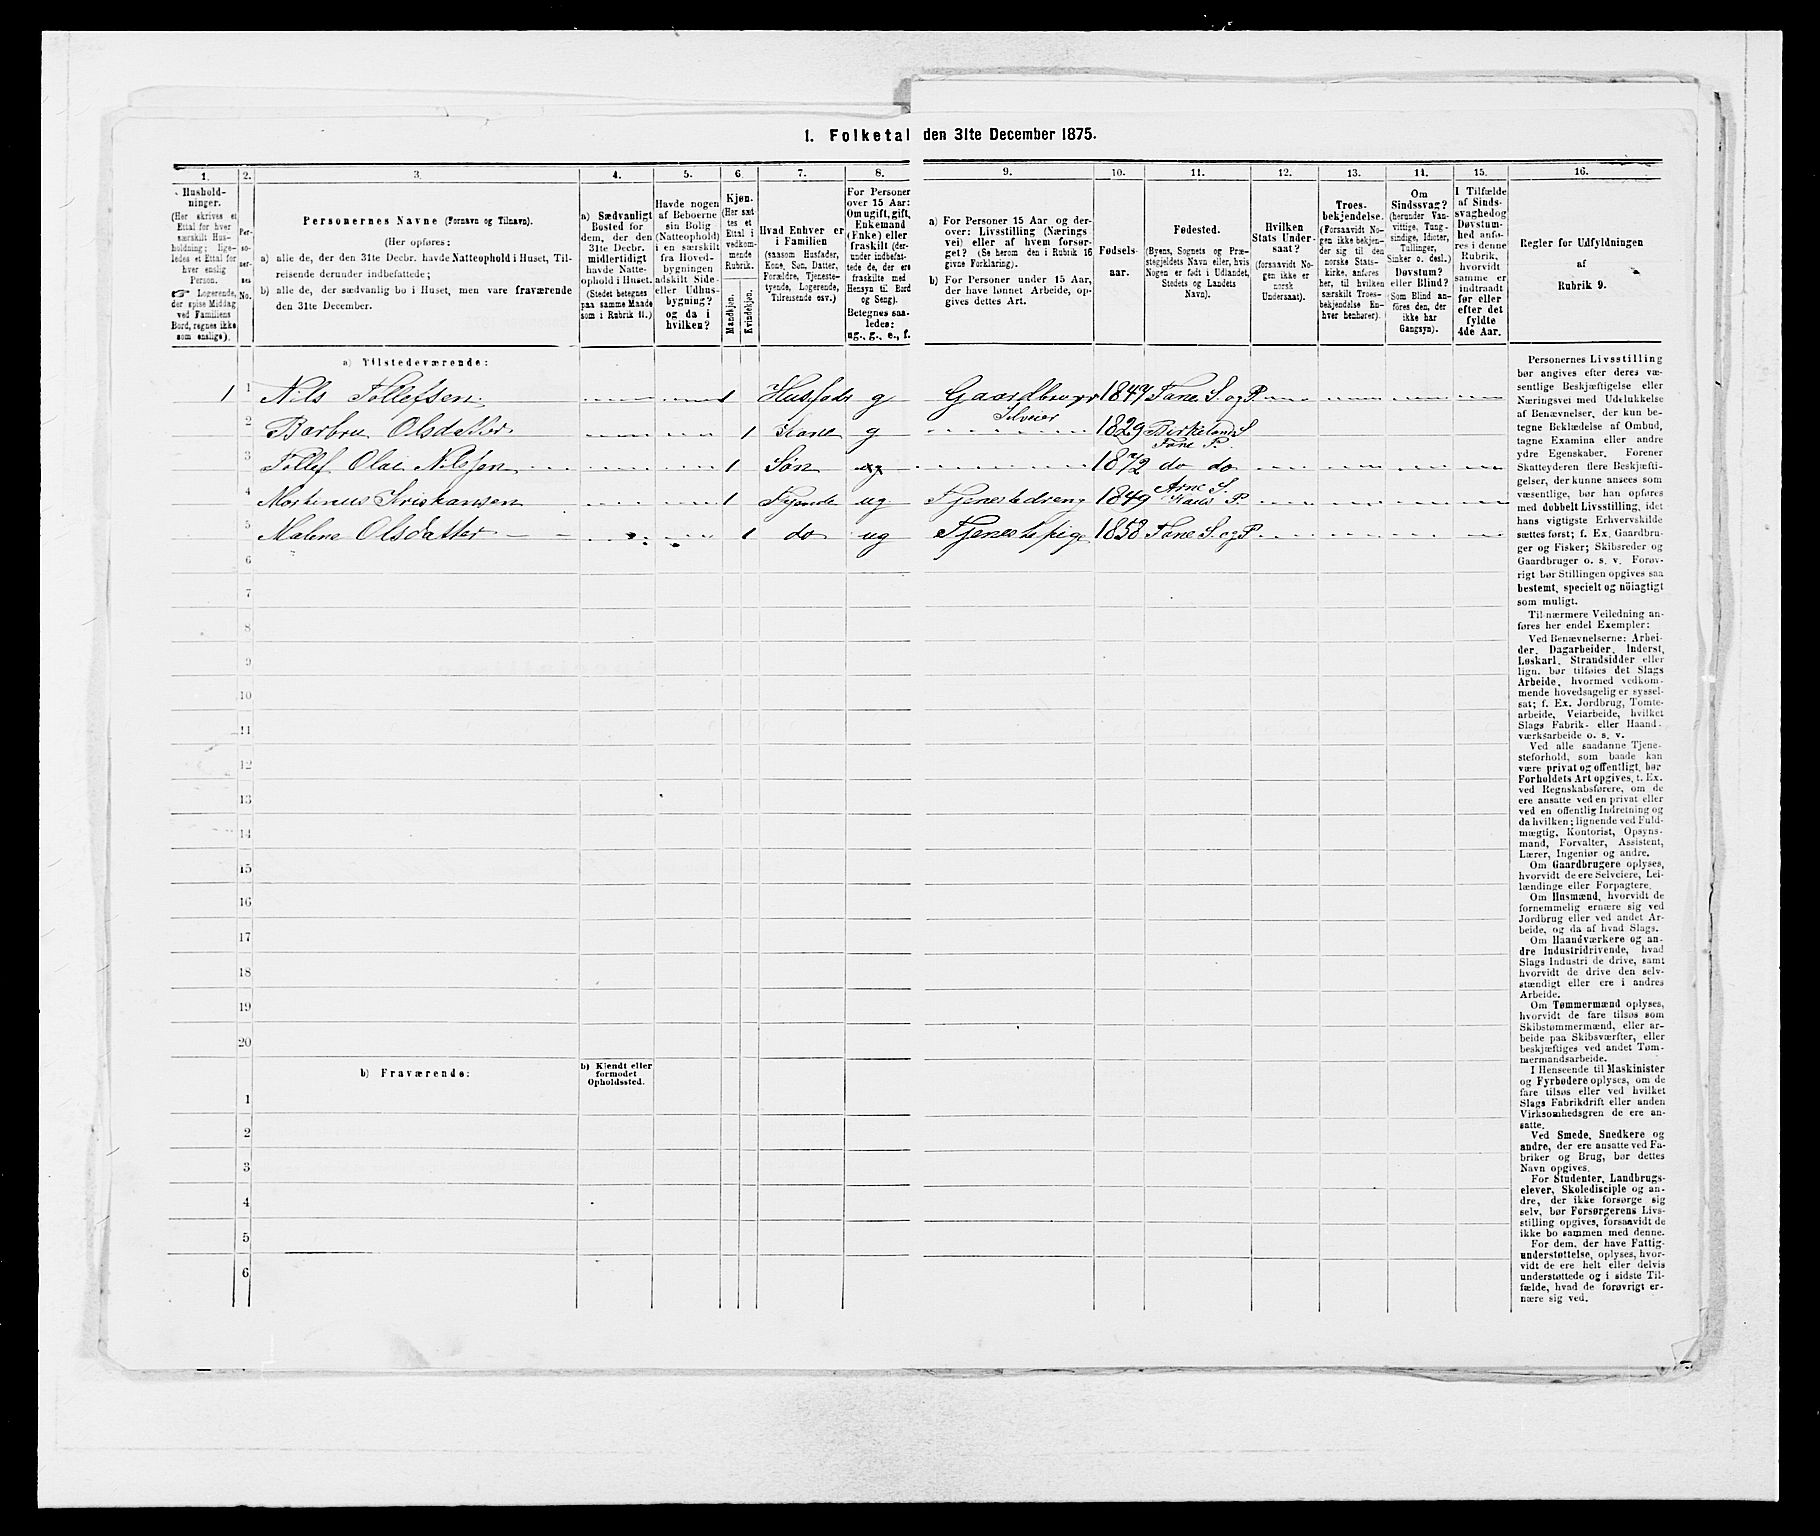 1. Folketal den 31te December 1875.
1. 2. 3. 4. 5. 6. 7. 8. 9. 10. 11. 12. 13. 14. 15. 16.
Hushold-
ninger.
(Her skrives et
Ettal for hver
særskilt Hus-
holdning; lige-
ledes et Ettal for
hver enslig
Person.
☞ Logerende,
der spise Middag
ved Familiens
Bord, regnes ikke
som enslige).
Per-
so-
ner-
nes
No.
Personernes Navne (Fornavn og Tilnavn).
(Her opføres:
a) alle de, der den 31te Decbr. havde Natteophold i Huset, Til-
reisende derunder indbefattede;
b) alle de, der sædvanlig bo i Huset, men vare fraværende
den 31te December.
a) Sædvanligt
Bosted for
dem, der den
31te Decbr.
midlertidigt
havde Natte-
ophold i Huset.
(Stedet betegnes
paa samme Maade
som i Rubrik 11.)
Havde nogen
af Beboerne
sin Bolig
(Natteophold)
i en særskilt
fra Hoved-
bygningen
adskilt Side-
eller Udhus-
bygning?
og da i
hvilken?
Kjøn.
(Her sæt-
tes et
Ettal i
vedkom-
mende
Rubrik.
Mandkjøn.
Kvindekjøn.
Hvad Enhver er
i Familien
(saasom Husfader,
Kone, Søn, Datter,
Forældre, Tjeneste-
tyende, Logerende,
Tilreisende osv.)
For Personer
over 15 Aar:
Om ugift, gift,
Enkemand
(Enke) eller
fraskilt (der-
under indbefat-
tede de, der ere
fraskilte med
Hensyn til Bord
og Seng).
Betegnes saa-
ledes:
ug., g., e., f.
a) For Personer 15 Aar og der-
over: Livsstilling (Nærings
vei) eller af hvem forsør-
get? (Se herom den i Rubrik 16
givne Forklaring).
b) For Personer under 15 Aar,
der have lønnet Arbeide, op-
gives dettes Art.
Fødsels-
aar.
Fødested.
(Byens, Sognets og Præ-
stegjeldets Navn eller, hvis
Nogen er født i Udlandet,
Stedets og Landets
Navn).
Hvilken
Stats Under-
saat?
(forsaavidt No-
gen ikke er
norsk
Undersaat).
Troes-
bekjendelse.
(Forsaavidt No-
gen ikke bekjen-
der sig til den
norske Stats-
kirke, anføres
her, til hvilken
særskilt Troes-
bekjendelse En-
hver henhører).
Om
Sindssvag?
(herunder Van-
vittige, Tung-
sindige, Idioter,
Tullinger,
Sinker o. desl.)
Døvstum?
eller Blind?
(Som Blind an-
føres den, der
ikke har
Gangsyn).
I Tilfælde
af Sinds-
svaghed og
Døvstum-
hed anfø-
res i denne
Rubrik,
hvorvidt
samme er
indtraadt
før eller
efter det
fyldte
4de Aar.
Regler for Udfyldningen
af
Rubrik 9.
a) Tilstedeværende:
1 1 Nils Tollefsen 1 Husfader g Gaardbruger Selveier 1847 Fane S. og P.
2 Barbru Olsdatter 1 Kone g 1829 Birkeland S Fane P.
3 Tollef Olai Nilssen 1 Søn ug 1872 do do
4 Martinus Kristiansen 1 Tyende ug Tjenestedreng 1849 Arne S. P
5 Malene Olsdatter 1 do ug Tjenestepige 1858 Fane S. og P.
6
7
8
9
10
11
12
13
14
15
16
17
18
19
20
b) Fraværende:
b) Kjendt eller
formodet
Opholdssted.
1
2
3
4
5
6
Personernes Livsstilling
bør angives efter deres væ-
sentlige Beskjæftigelse eller
Næringsvei med Udelukkelse
af Benævnelser, der kun be-
tegne Beklædelse af Ombud,
tagne Examina eller andre
ydre Egenskaber. Forener
Skatteyderen flere Beskjæfti-
gelser, der kunne ansees som
væsentlige, bør han opføres
med dobbelt Livsstilling, idet
hans vigtigste Erhvervskilde
sættes først; f. Ex. Gaardbru-
ger og Fisker; Skibsreder og
Gaardbruger o. s. v. Forøv-
rigt bør Stillingen opgives saa
bestemt, specielt og nöiagtigt
som muligt.
Til nærmere Veiledning an-
føres her endel Exempler:
Ved Benævnelserne: Arbei-
der, Dagarbeider, Inderst,
Løskarl, Strandsidder eller
lign. bør tilføies det Slags
Arbeide, hvormed vedkom-
mende hovedsagelig er syssel-
sat; f. Ex. Jordbrug, Tomte-
arbeide, Veiarbeide, hvilket
Slags Fabrik- eller Haand-
værksarbeide o. s. v.
Ved alle saadanne Tjene-
steforhold, som baade kan
være privat og offentligt, bør
Forholdets Art opgives, t. Ex.
ved Regnskabsførere, om de
ere ansatte ved en privat eller
ved en offentlig Indretning og
da hvilken; lignende ved Fuld-
mægtig, Kontorist, Opsyns-
mand, Forvalter, Assistent,
Lærer, Ingeniør og andre.
Om Gaardbrugere oplyses,
hvorvidt de ere Selveiere, Lei-
lændinge eller Forpagtere.
Om Husmænd, hvorvidt de
fornemmelig ernære sig ved
Jordbrug eller ved andet Ar-
beide, og da af hvad Slags.
Om Haandværkere og an-
dre Industridrivende, hvad
Slags Industri de drive, samt
hvorvidt de drive den selv-
stændigt eller ere i andres
Arbeide.
Om Tømmermænd oplyses,
hvorvidt de fare tilsøs som
Skibstømmermænd, eller ar-
beide paa Skibsværfter, eller
beskjæftiges ved andet Tøm-
mermandsarbeide.
I Henseende til Maskinister
og Fyrbødere oplyses, om de
fare tilsøs eller ved hvilket
Slags Fabrikdrift eller anden
Virksomhedsgren de ere an-
satte.
Ved Smede, Snedkere og
andre, der ere ansatte ved Fa-
briker og Brug, bør dettes
Navn opgives.
For Studenter, Landbrugs-
elever, Skoledisciple og an-
dre, der ikke forsørge sig
selv, bør Forsørgerens Livs-
stilling opgives, forsaavidt de
ikke bo sammen med denne.
For dem, der have Fattig-
understøttelse, oplyses, hvor-
vidt de ere helt eller delvis
understøttede og i sidste Til-
fælde, hvad de forøvrigt er-
nære sig ved.